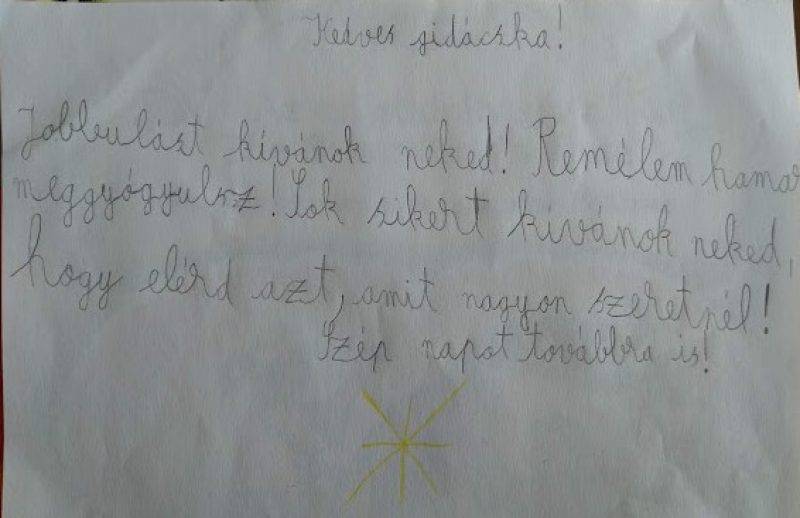 Kedves gidáczka!
Jobbulást kívánok neked! Remélem hamar
meggyógyulsz! Sok sikert kívánok neked,
hogy elérd azt, amit nagyon szeretnél!
Szép napot továbbra is!